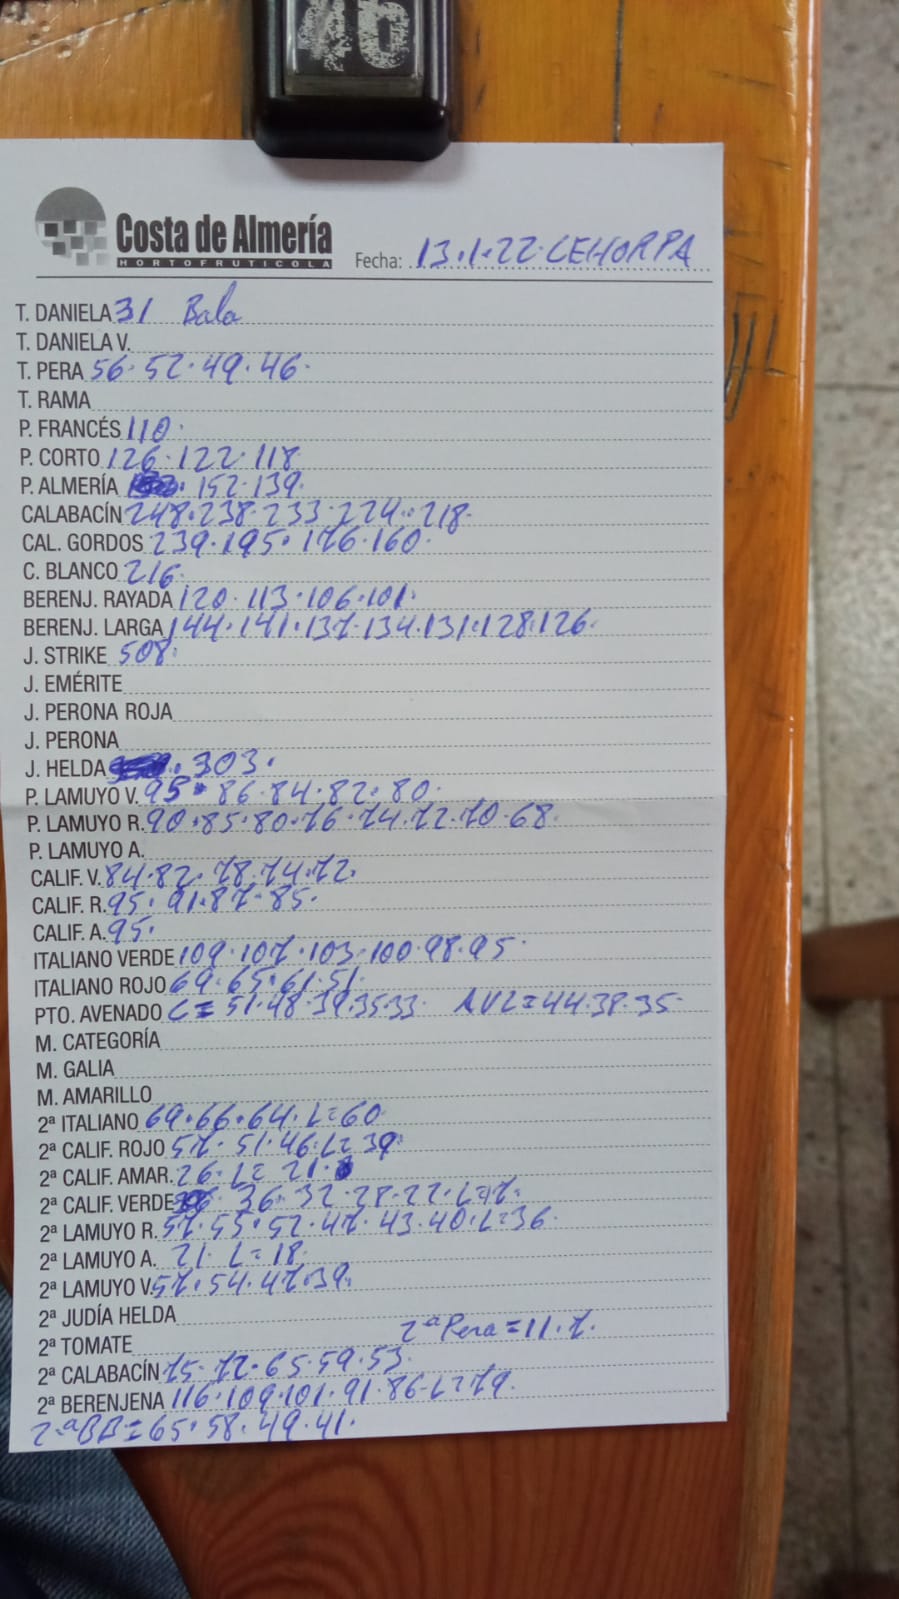 Costa de Almería
HORTOFRUTICOLA
Fecha: 13.1.22.CEHORPA
T. DANIELA 31 Bala
T. DANIELA V.
T. PERA 56.52.49.46.
T. RAMA
P. FRANCÉS 110.
P. CORTO 126.122.118
P. ALMERÍA 152.139.
CALABACÍN 248.238.233.224.218.
CAL. GORDOS 239.195.176.160.
C. BLANCO 216.
BERENJ. RAYADA 120.113.106.101.
BERENJ. LARGA 144.141.137.134.131.128.126.
J. STRIKE 508.
J. EMÉRITE
J. PERONA ROJA
J. PERONA
J. HELDA 303.
P. LAMUYO V. 95.86.84.82.80.
P. LAMUYO R. 90.85.80.76.74.72.70.68
P. LAMUYO A.
CALIF. V. 84.82.78.74.72.
CALIF. R. 95.91.87.85.
CALIF. A. 95.
ITALIANO VERDE 109.107.103.100.98.95.
ITALIANO ROJO 69.65.61.51.
PTO. AVENADO C=51.48.39.35.33. AVL=44.38.35.
M. CATEGORÍA
M. GALIA
M. AMARILLO
2ª ITALIANO 69.66.64.L=60
2ª CALIF. ROJO 57.51.46.L=39.
2ª CALIF. AMAR. 26.L=21.
2ª CALIF. VERDE 36.32.28.22.L=17.
2ª LAMUYO R. 57.53.52.47.43.40.L=36.
2ª LAMUYO A. 21.L=18.
2ª LAMUYO V. 57.54.47.39.
2ª JUDÍA HELDA
2ª Pera=11.7.
2ª TOMATE
2ª CALABACÍN 75.72.65.59.53.
2ª BERENJENA 116.109.101.91.86.L=79.
2.ªBB=65.58.49.41.